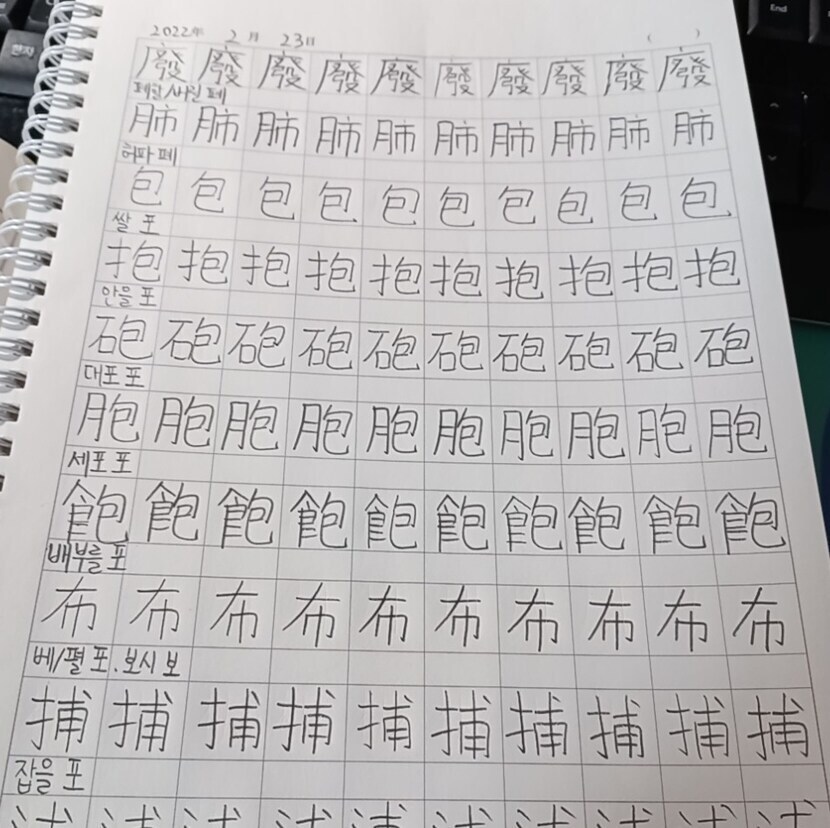 End
한자
2022年 2月 23日 ( )
廢 廢 廢 廢 廢 廢 廢 廢 廢 廢
폐할/버릴 폐
肺 肺 肺 肺 肺 肺 肺 肺 肺 肺
허파 폐
包 包 包 包 包 包 包 包 包 包
쌀 포
抱 抱 抱 抱 抱 抱 抱 抱 抱 抱
안을 포
砲 砲 砲 砲 砲 砲 砲 砲 砲 砲
대포 포
胞 胞 胞 胞 胞 胞 胞 胞 胞 胞
세포 포
飽 飽 飽 飽 飽 飽 飽 飽 飽 飽
배부를 포
布 布 布 布 布 布 布 布 布 布
베/펼 포. 보시 보
捕 捕 捕 捕 捕 捕 捕 捕 捕 捕
잡을 포